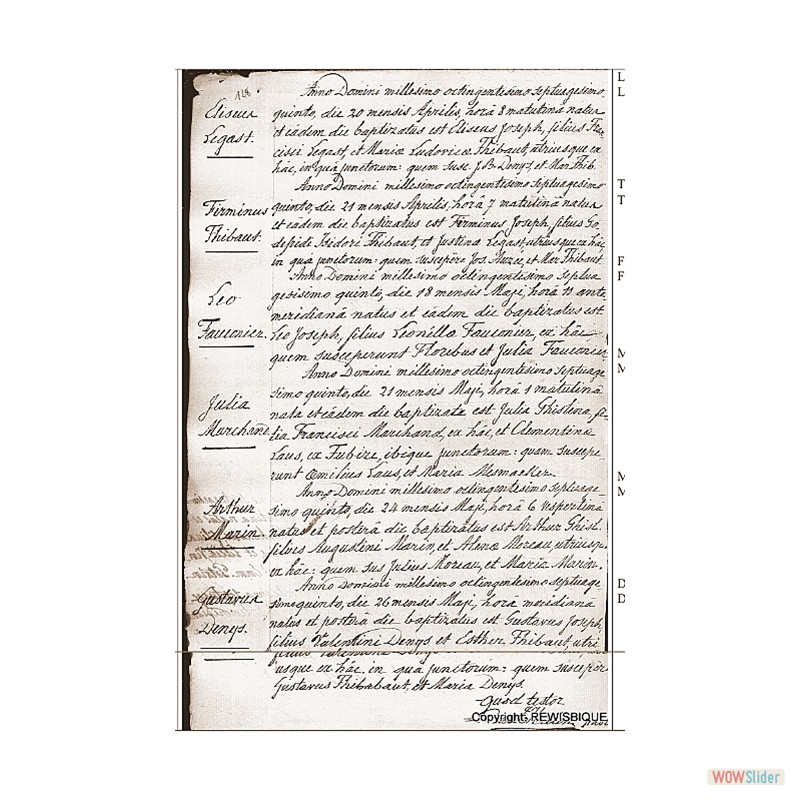 128
Anno Domini millesimo octingentesimo septuagesimo
Eliseus
quinto, die 20 mensis Aprilis, horâ 8 matutinâ natus
Legast.
et eâdem die baptizatus est Eliseus Joseph, filius Fran
cisci Legast, et Mariæ Ludovicæ Thibaut, utriusque ex
hâc, in quâ junctorum: quem susc. J.B. Denys, et Mar Thib.
Anno Domini millesimo octingentesimo septuagesimo
Firminus
quinto, die 21 mensis Aprilis, horâ 7 matutinâ natus
et eâdem die baptizatus est Firminus Joseph, filius Go
Thibaut.
defridi Isidori Thibaut, et Justina Legast, utriusque ex hâc,
in quâ junctorum: quem suscepere Jos. et Mar Thibaut
Anno Domini millesimo octingentesimo septua
Leo
gesisimo quinto, die 18 mensis Maji, horâ 11 ante
meridianâ natus et eâdem die baptizatus est
Fauconier.
Leo Joseph, filius Leonilla Fauconier, ex hâc
quem susceperunt Floribus et Julia Fauconier
Anno Domini millesimo octingentisimo septuage
simo quinto, die 21 mensis Maji, horâ 1 matutinâ
Julia
nata et eâdem die baptizata est Julia Ghislena, fi
Marchand.
lia Francisci Marchand, ex hâc, et Clementina
Laus, ex Fubize, ibique junctorum: quam suscepe
runt Æmilius Laus, et Maria Mesmacker
Anno Domini millesimo octingentesimo septuage-
Arthur
simo quinto, die 24 mensis Maji, horâ 6 vespertinâ
natus et posterâ die baptizatus est Arthur Ghisl.
Marin.
filius Augustini Marin, et Alena Moreau, utriusq.
ex hâc: quem sus Julius Moreau, et Maria Marin.
Anno Domini millesimo octingentesimo septuage
Gustavus
simo quinto, die 26 mensis Maji, horâ meridianâ
natus et posterâ die baptizatus est Gustavus Joseph,
Denys.
filius Valentini Denys et Esther Thibaut, utri
usque ex hâc, in quâ junctorum: quem suscepêr
Gustavus Thibabaut, et Maria Denys.
Quod testor
Copyright: REWISBIQUE
L
L
T
T
F
F
M
M
M
M
D
D
WOWSlider